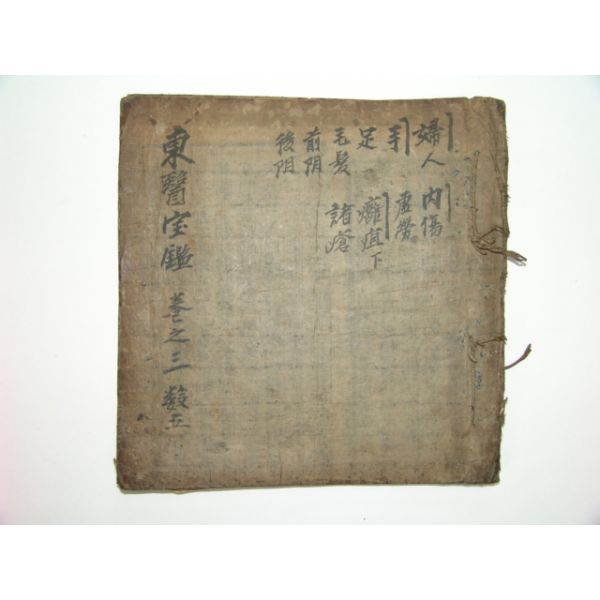 婦人 内傷
手 虛勞
足 癰疽下
毛髮 諸瘡
前阴
後阴
東醫宝鑑 卷之三 数五